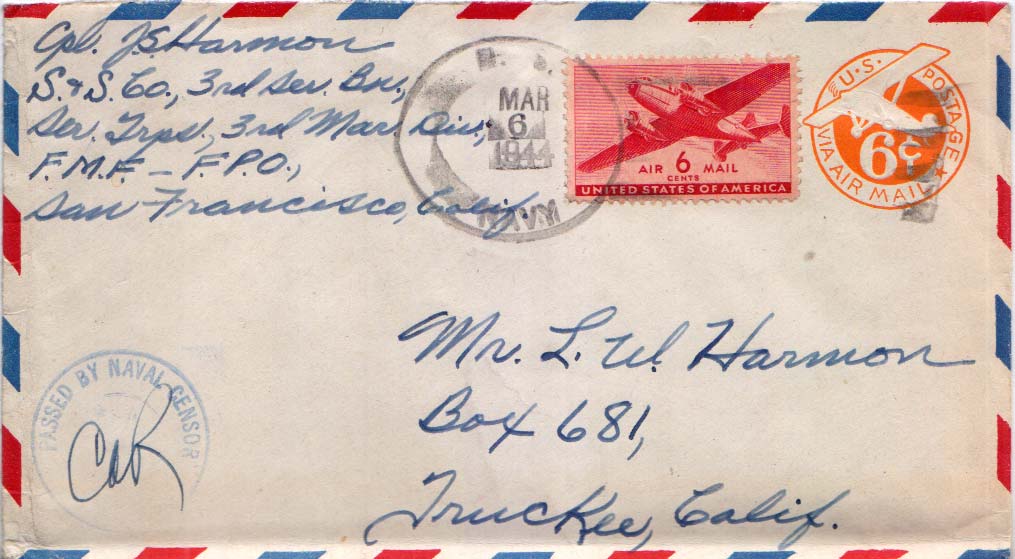 Cpl. J.S. Harmon
S. & S. Co., 3rd Ser. Bn.,
Ser. Trps., 3rd Mar. Div.,
F.M.F. – F.P.O.,
San Francisco, Calif.
U. S.
MAR
6
1944
NAVY
AIR 6 MAIL
CENTS
UNITED STATES OF AMERICA
U.S. POSTAGE
6¢
VIA AIR MAIL
Mr. L. W. Harmon
Box 681,
Truckee, Calif.
PASSED BY NAVAL CENSOR